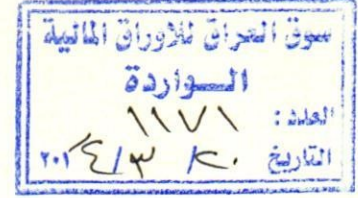 سوق العراق للاوراق المالية
الـــواردة
العدد : ١١٧١
التاريخ ٢٠ / ٣ / ٢٠١٤